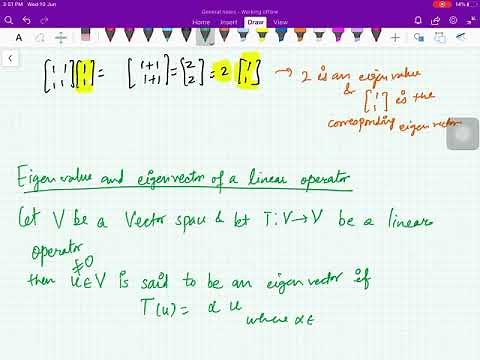 3:51 PM Wed 10 Jun
General notes - Working offline
14%
Home Insert Draw View
[1 1 1 1] [1 1] = [1+1 1+1] = [2 2] = 2 [1 1] → 2 is an eigen value
& [1 1] is the
corresponding eigen vector
Eigen value and eigenvector of a linear operator
Let V be a Vector space & let T: V→V be a linear
operator
then u∈V is said to be an eigen vector if
≠0
T(u) = α u
where α∈